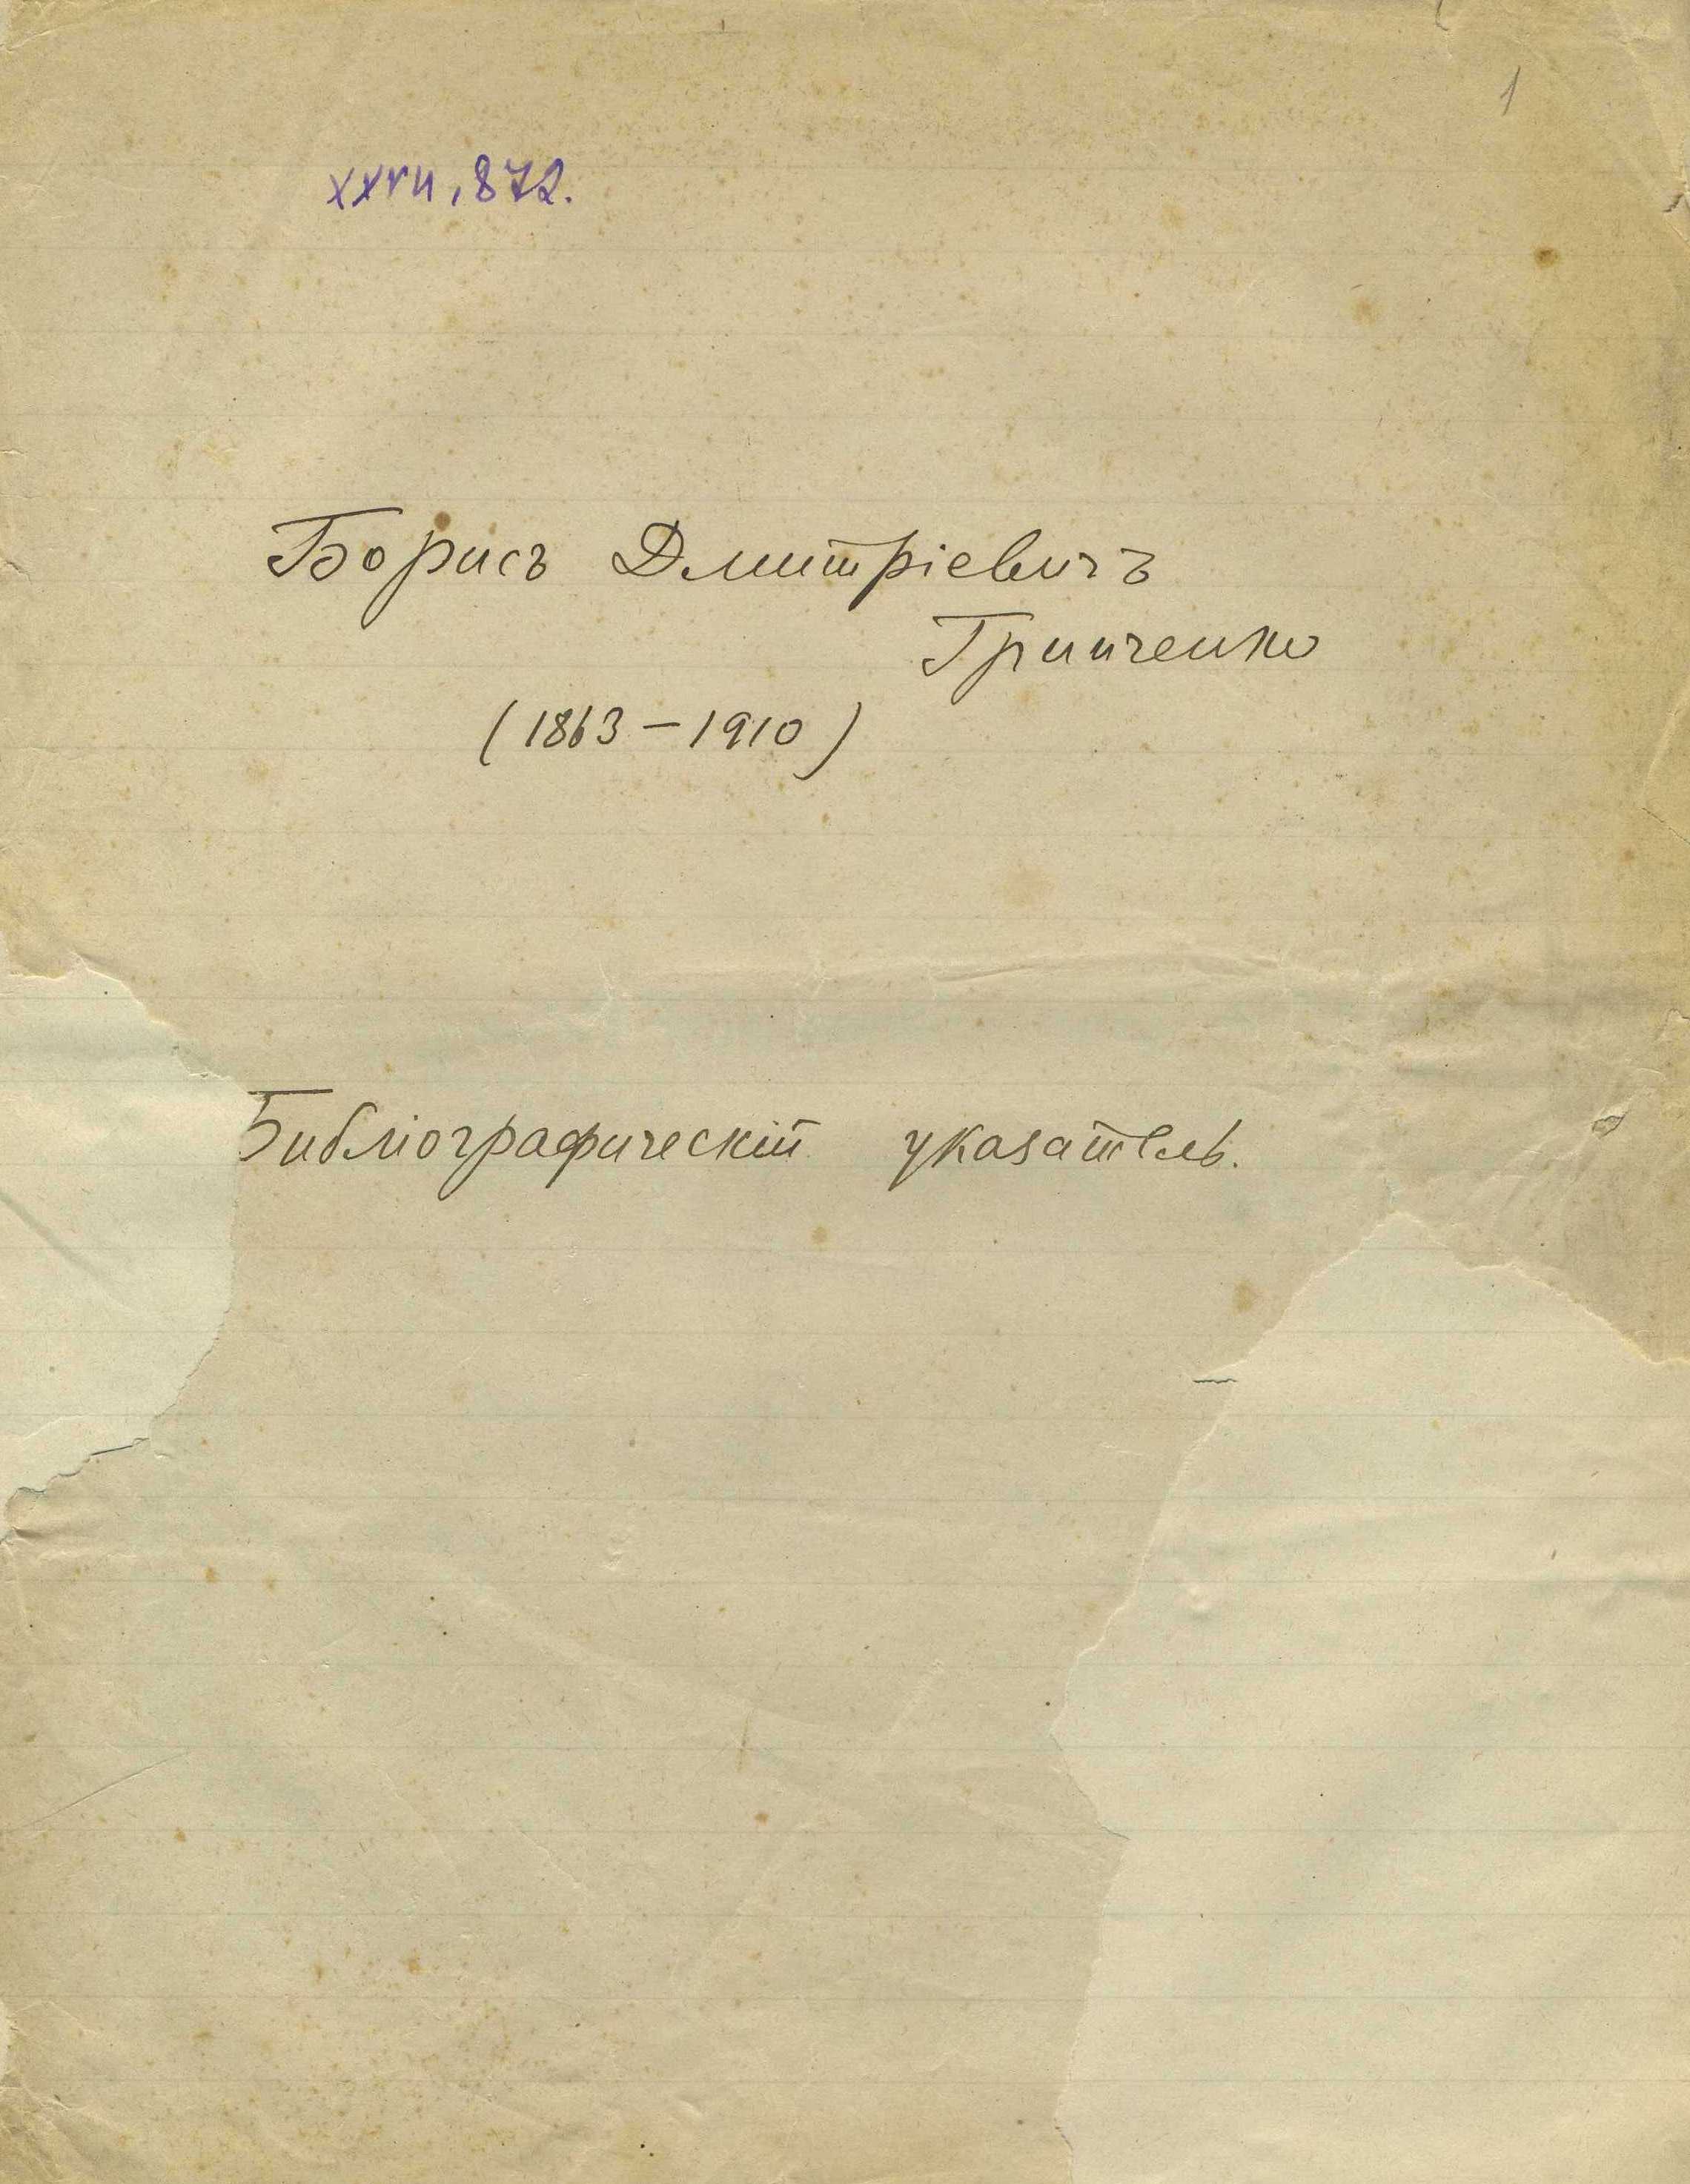 1
XXVII, 872.
Борисъ Дмитріевичъ
Гринченко
(1863 – 1910)
Библіографическій указатель.